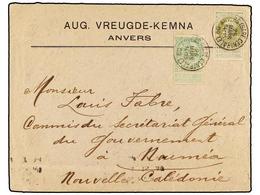 AUG. VREUGDE-KEMNA
ANVERS
Monsieur
Louis Fabre,
Commis du Secrétariat Général
du Gouvernement
à Nouméa
Nouvelle Calédonie